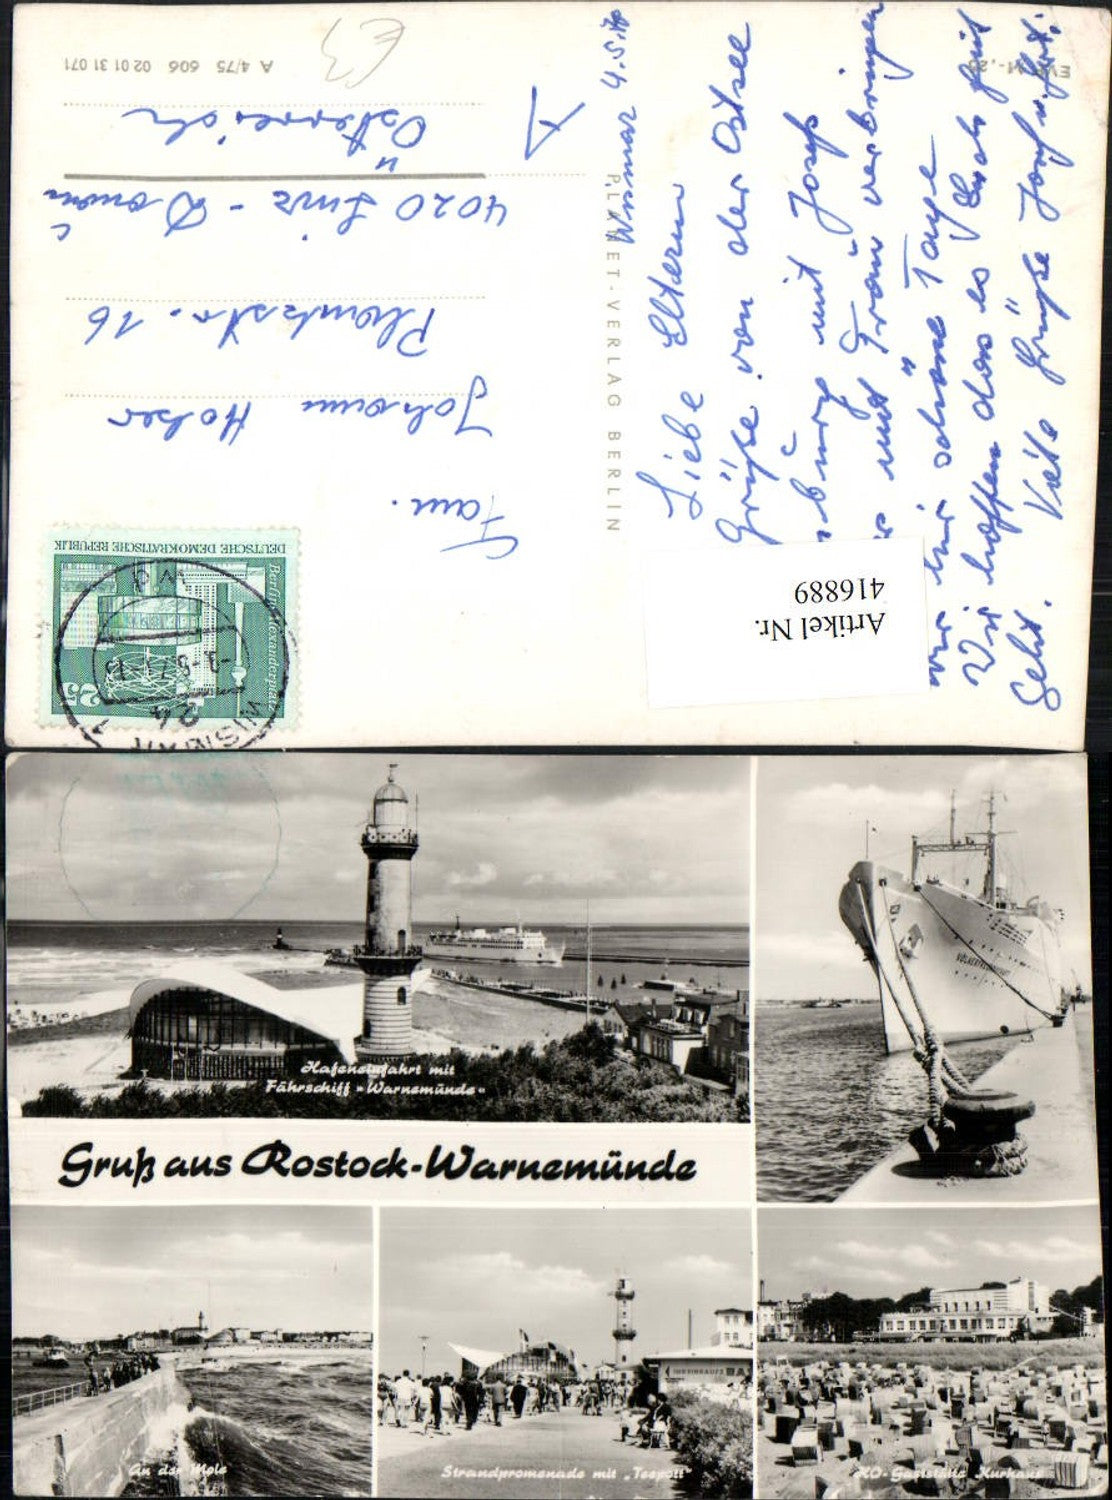 A 4/75 606 02 01 31 071
EVP M -,20
PLANET-VERLAG BERLIN
Wismar 4.5.
Liebe Eltern
Grüße von der Ostsee
burg mit Josef
und Frau verbringen
wir schöne Tage
Wir hoffen das es Euch gut
Geht. Viele Grüße Josef
Fam.
Johann
Plankstr. 16
4020 Linz - Donau
Österreich
A
DEUTSCHE DEMOKRATISCHE REPUBLIK
Berlin, Alexanderplatz
25
WISMAR
24
Artikel Nr.
416889
Hafeneinfahrt mit
Fährschiff »Warnemünde«
VÖLKERFREUNDSCHAFT
Gruß aus Rostock-Warnemünde
An der Mole
Strandpromenade mit „Teepott"
HO-Gaststätte Kurhaus